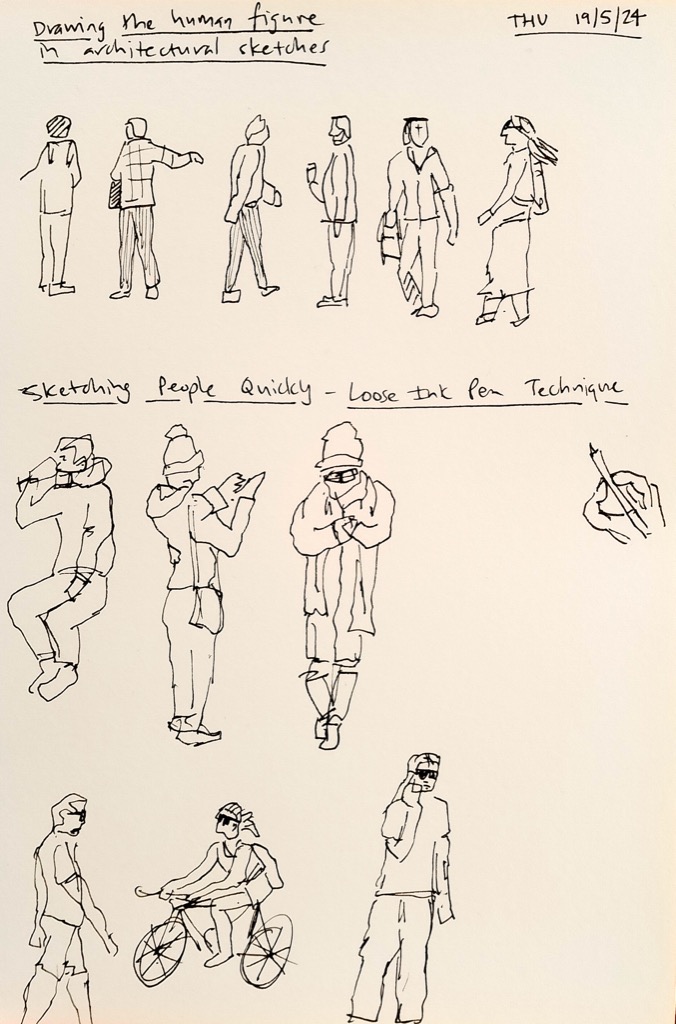 Drawing the human figure
in architectural sketches
THU 19/5/24
Sketching People Quickly - Loose Ink Pen Technique